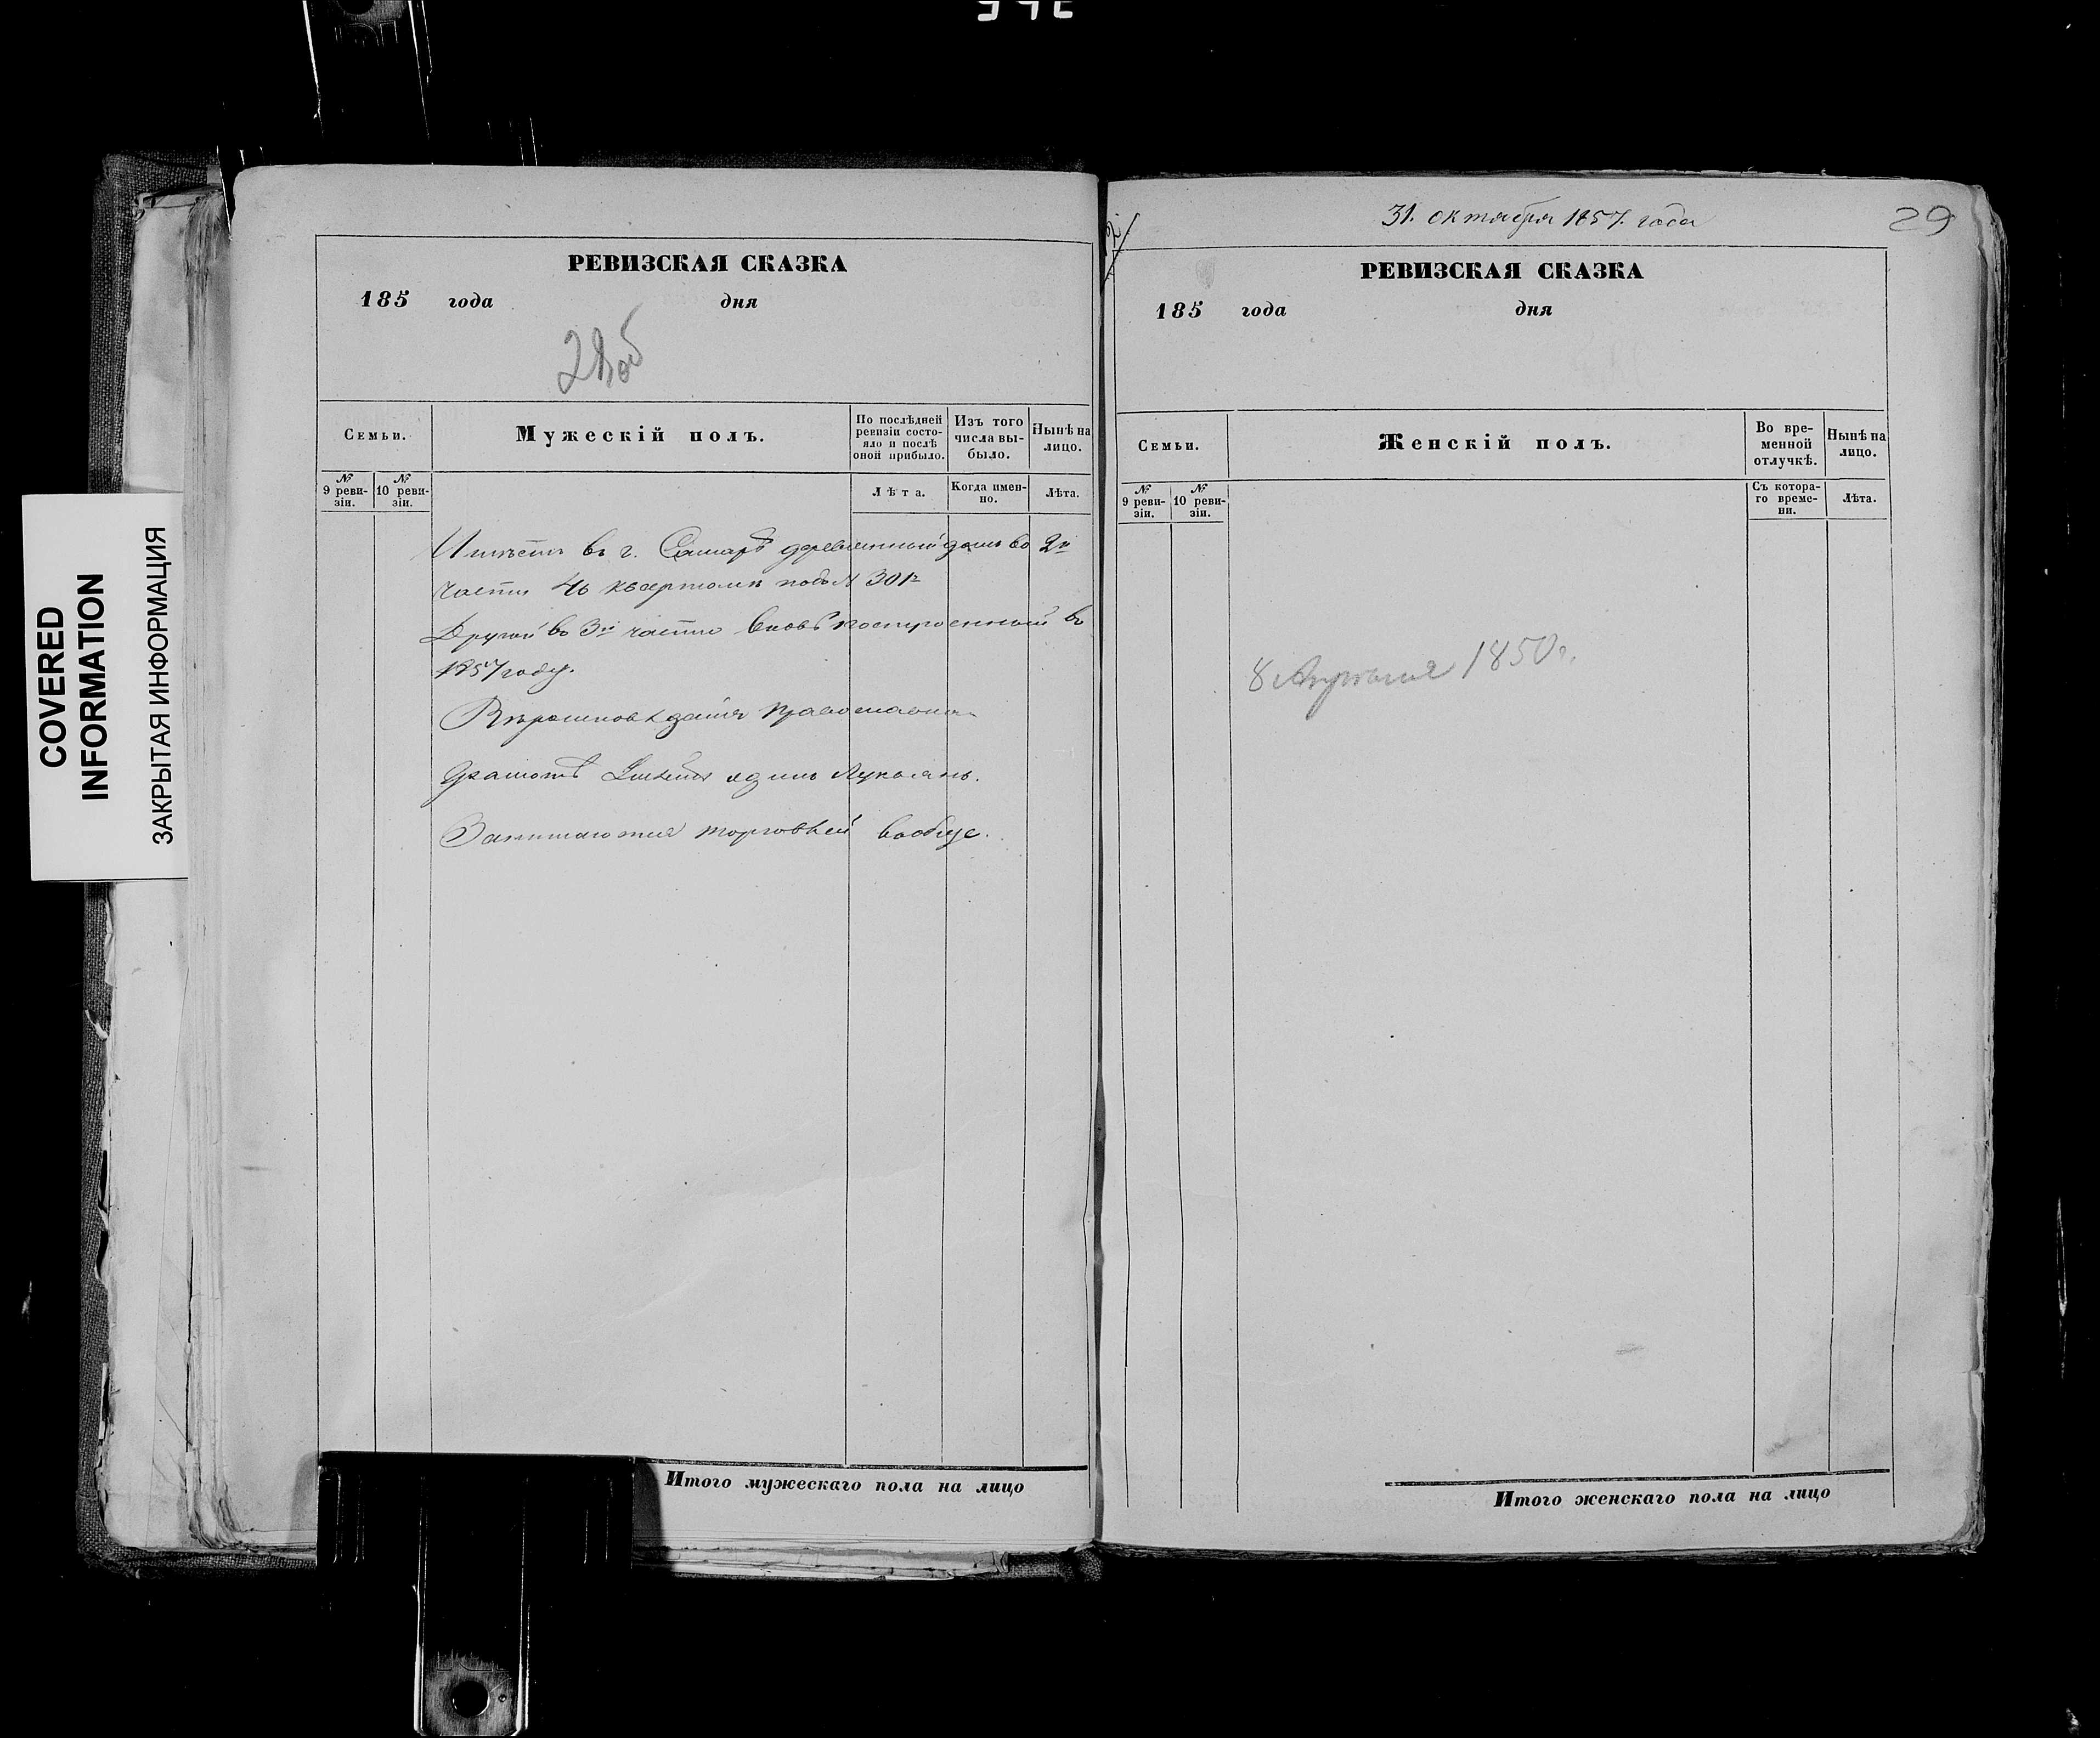 COVERED
INFORMATION
ЗАКРЫТАЯ ИНФОРМАЦИЯ
РЕВИЗСКАЯ СКАЗКА
185 года дня
28об
Семьи.
Мужескій полъ.
По послѣдней ревизіи состо-
яло и послѣ
оной прибыло.
Изъ того
числа вы-
было.
Нынѣ на
лицо.
№
9 реви-
зіи.
№
10 реви-
зіи.
Лѣта.
Когда имен-
но.
Лѣта.
Имѣетъ въ г. Самарѣ деревянный домъ во 2й
части 46 квартала подъ № 301
Другой во 3й части вновь построенный въ
1857 году.
Вѣроисповѣданія православна
Грамотѣ одинъ Лукьянъ.
Занимаются торговлей вообще.
Итого мужескаго пола на лицо
31. октября 1857. года
29
РЕВИЗСКАЯ СКАЗКА
185 года дня
Семьи.
Женскій полъ.
Во вре-
менной
отлучкѣ.
Нынѣ на
лицо.
№
9 реви-
зіи.
№
10 реви-
зіи.
Съ котора-
го време-
ни.
Лѣта.
8 Апрѣля 1850 г.
Итого женскаго пола на лицо